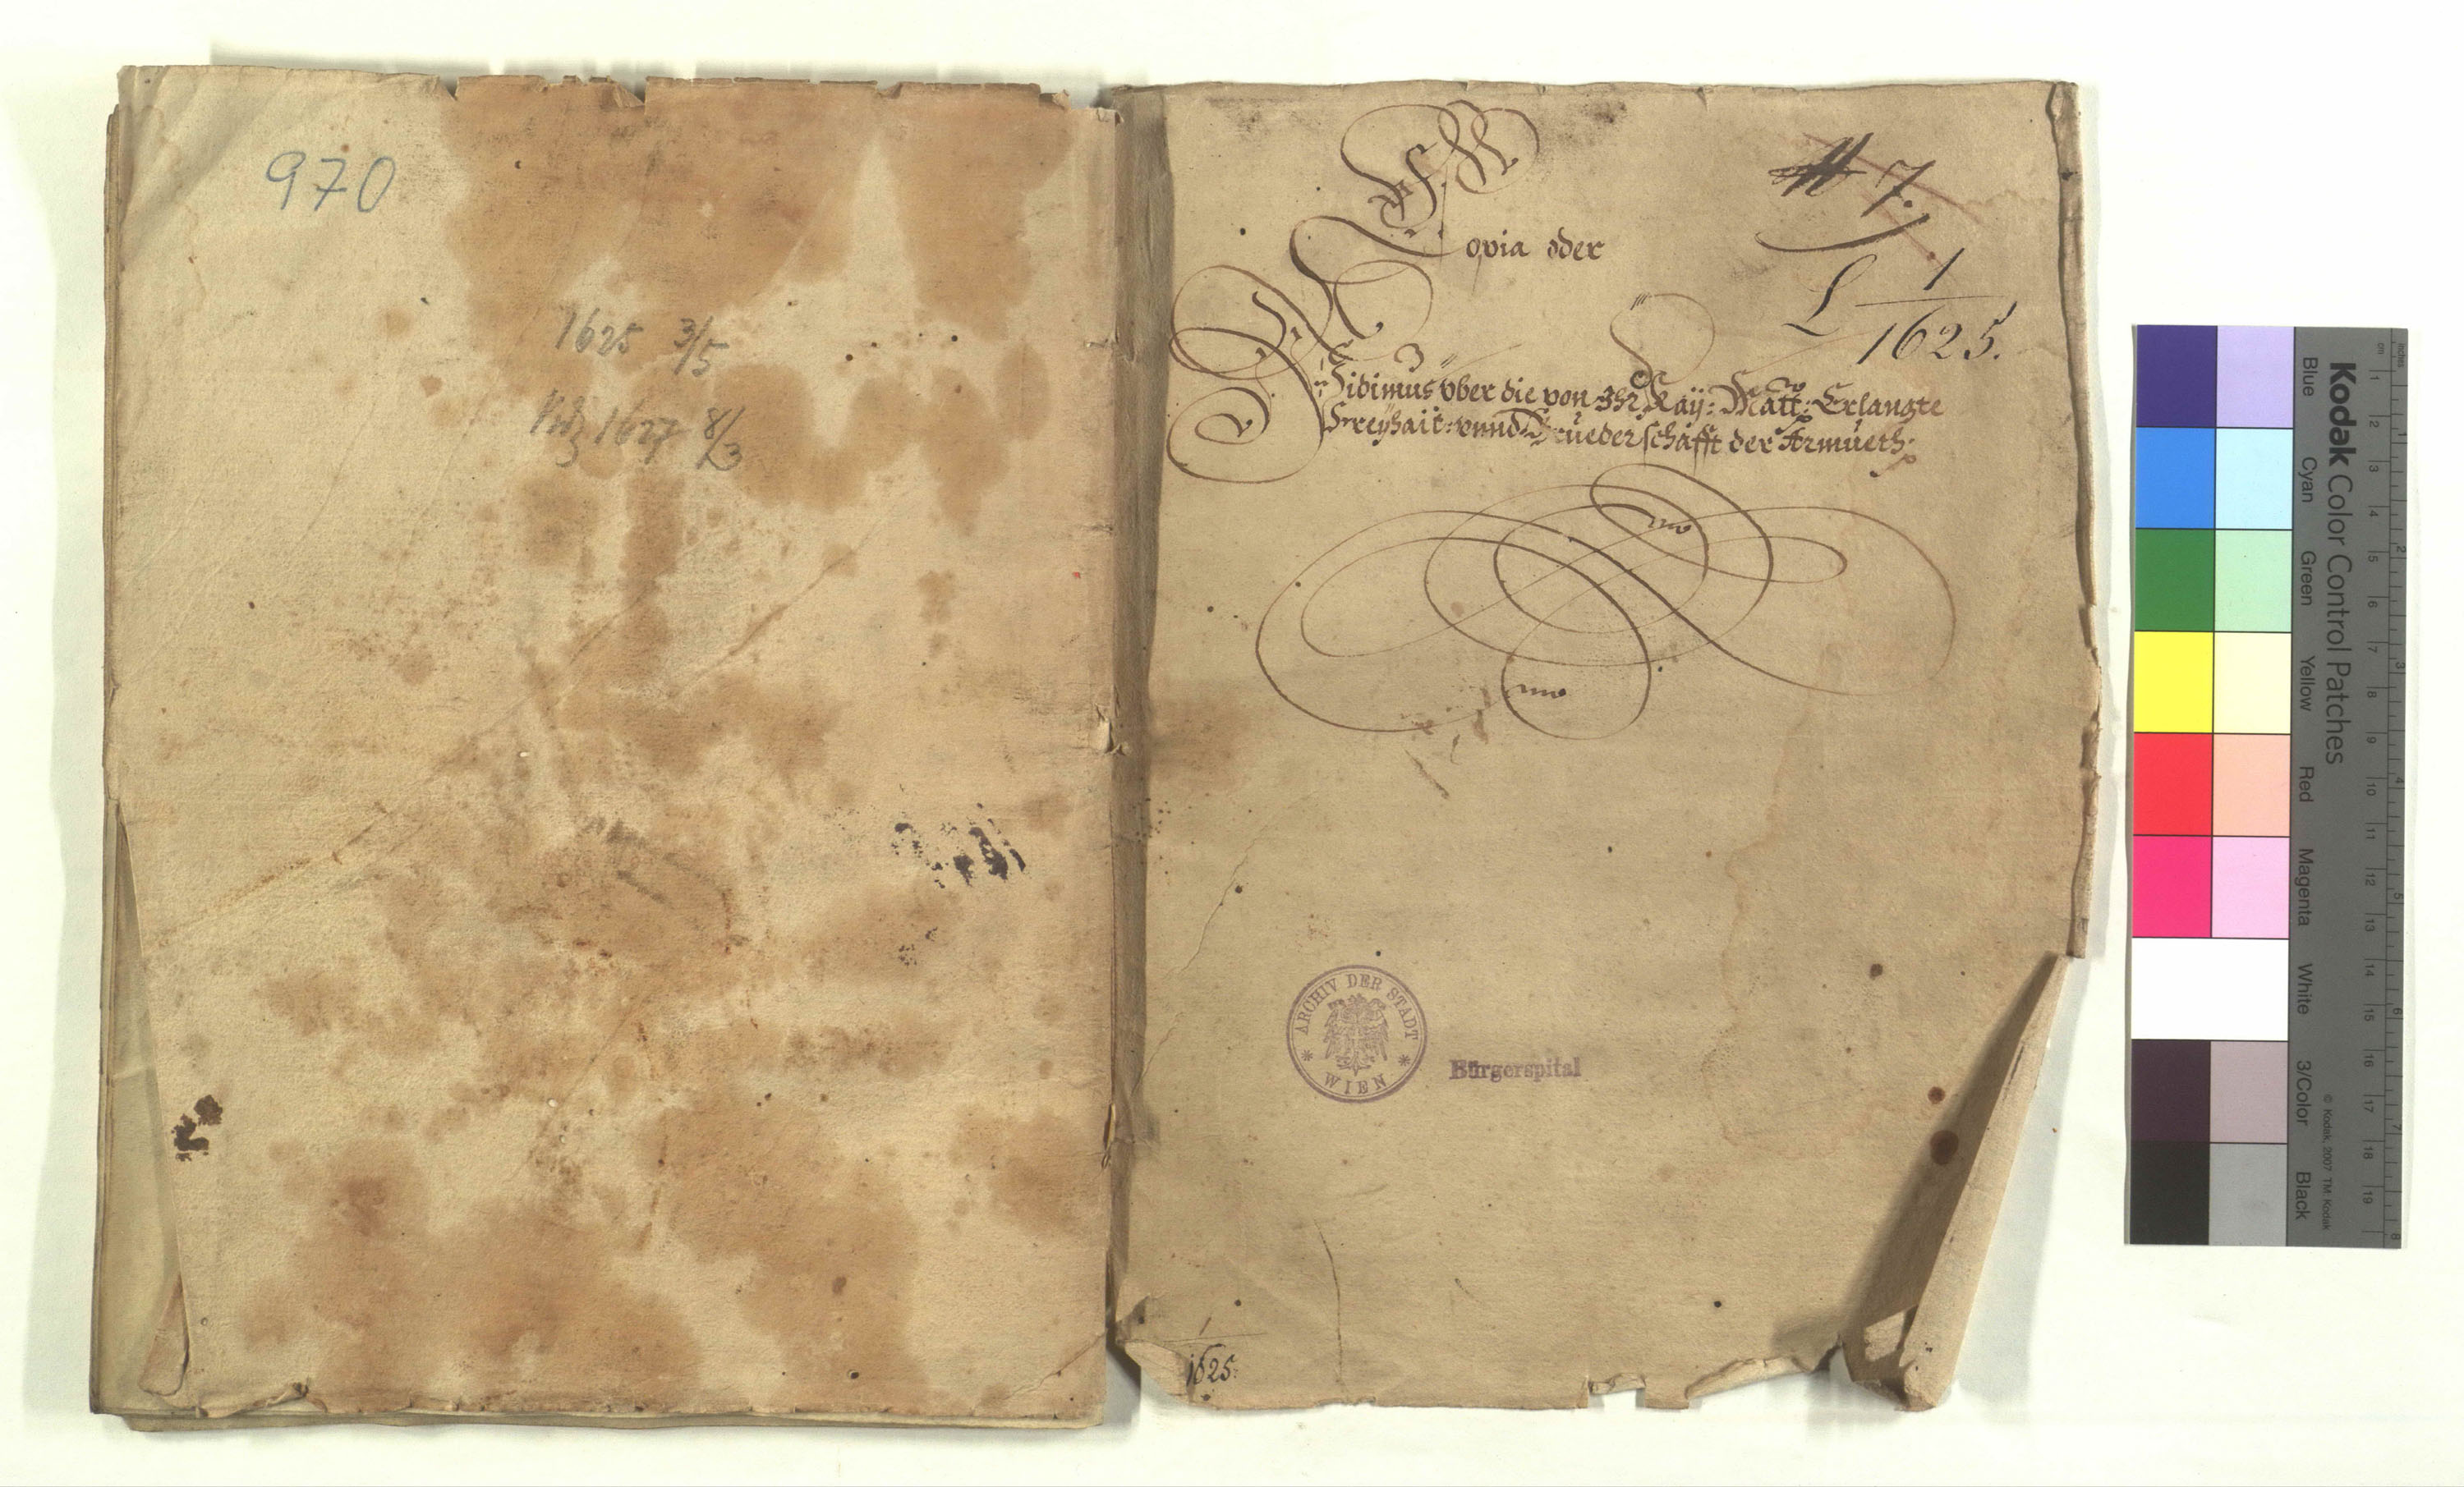 970
1625 3/5
Vdz 1627 8/3
Copia oder
Vidimus vber die von Ihr Kaÿ: Maÿtt: Erlangte
Freyhait: vnnd Brüederschafft der Armüeth:
# 7.
L 1/1625.
ARCHIV DER STADT
WIEN
Bürgerspital
1/1625.
Kodak Color Control Patches
Blue Cyan Green Yellow Red Magenta White 3/Color Black
© Kodak, 2007 TM: Kodak
cm 1 2 3 4 5 6 7 8 9 10 11 12 13 14 15 16 17 18 19
inches 1 2 3 4 5 6 7 8